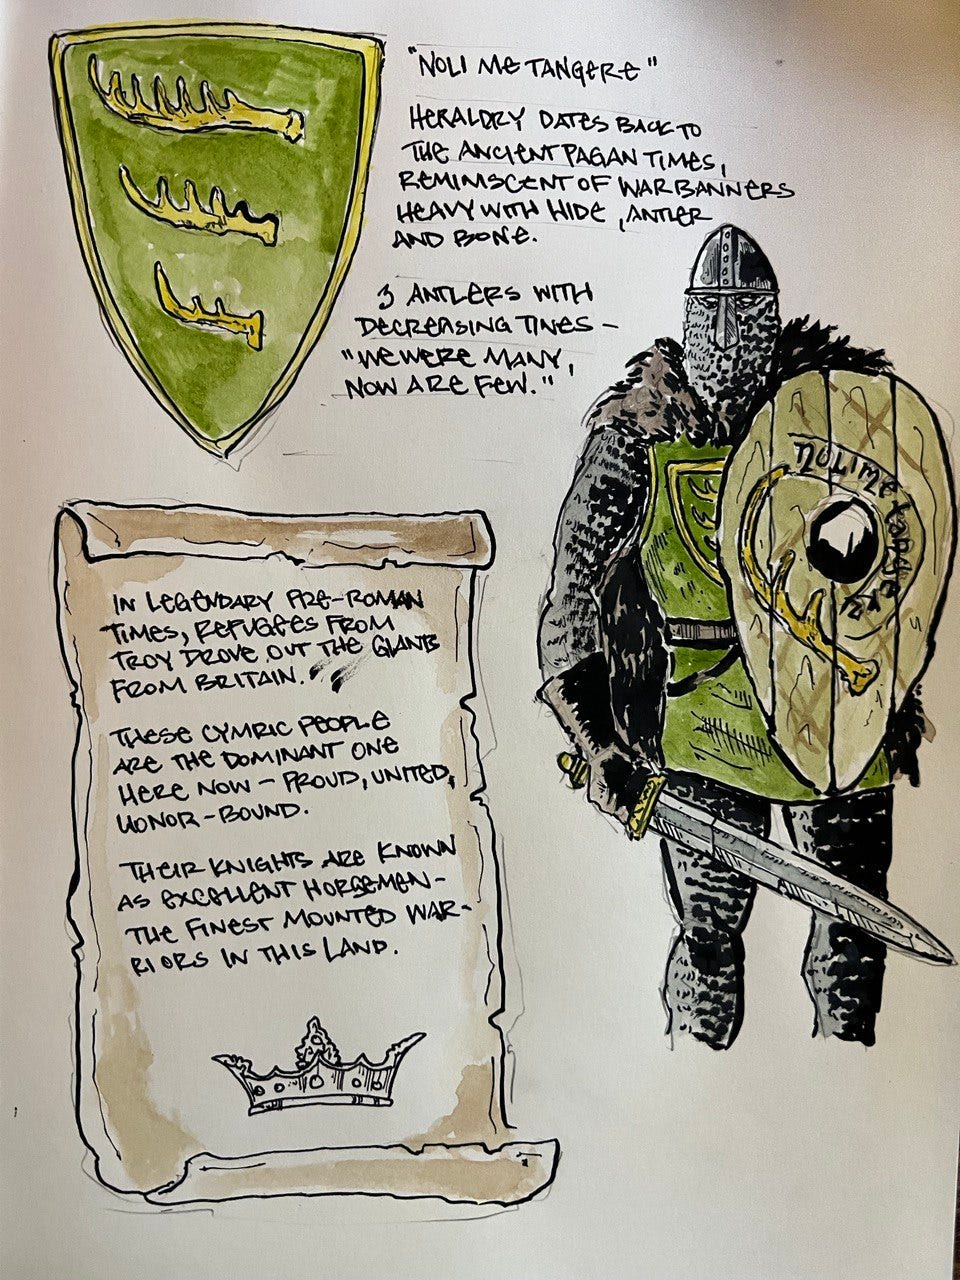 "NOLI ME TANGERE"
HERALDRY DATES BACK TO
THE ANCIENT PAGAN TIMES,
REMINISCENT OF WAR BANNERS
HEAVY WITH HIDE, ANTLER
AND BONE.
3 ANTLERS WITH
DECREASING TINES –
"WE WERE MANY,
NOW ARE FEW."
NOLI ME TANGERE
IN LEGENDARY PRE-ROMAN
TIMES, REFUGEES FROM
TROY DROVE OUT THE GIANTS
FROM BRITAIN.
THESE CYMRIC PEOPLE
ARE THE DOMINANT ONE
HERE NOW – PROUD, UNITED,
HONOR-BOUND.
THEIR KNIGHTS ARE KNOWN
AS EXCELLENT HORSEMEN –
THE FINEST MOUNTED WAR-
RIORS IN THIS LAND.